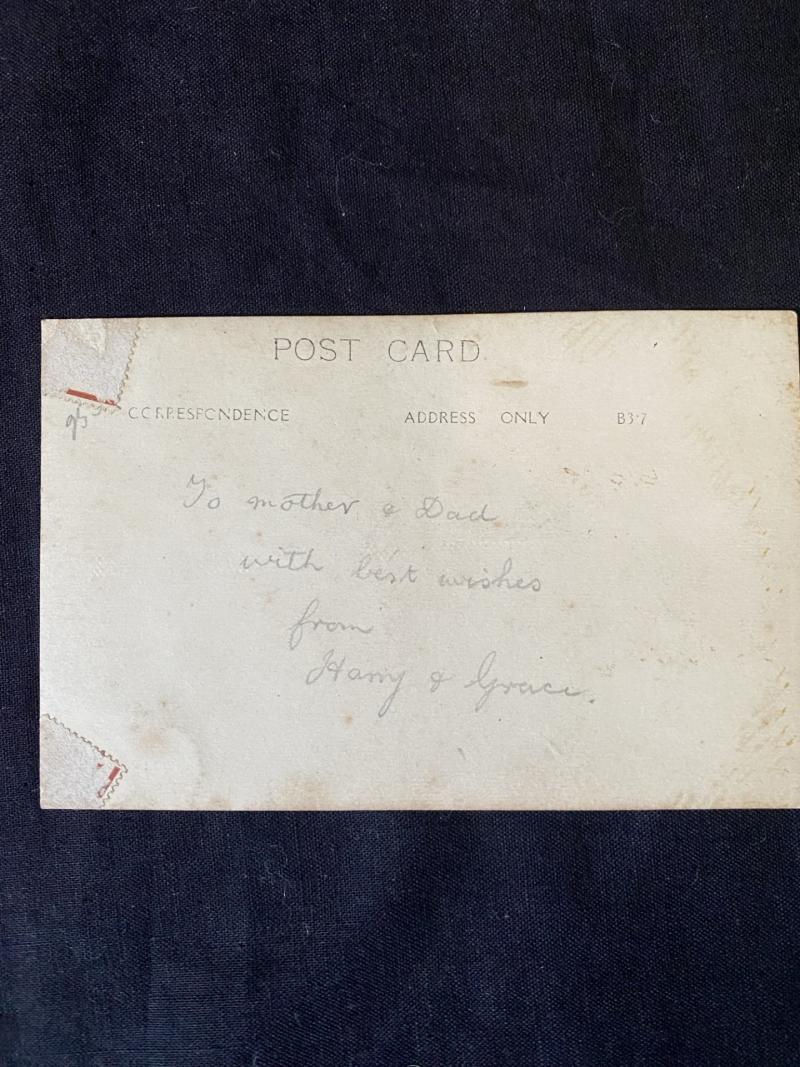 POST CARD
CORRESPONDENCE ADDRESS ONLY B37
To mother & Dad
with best wishes
from
Harry & Grace.